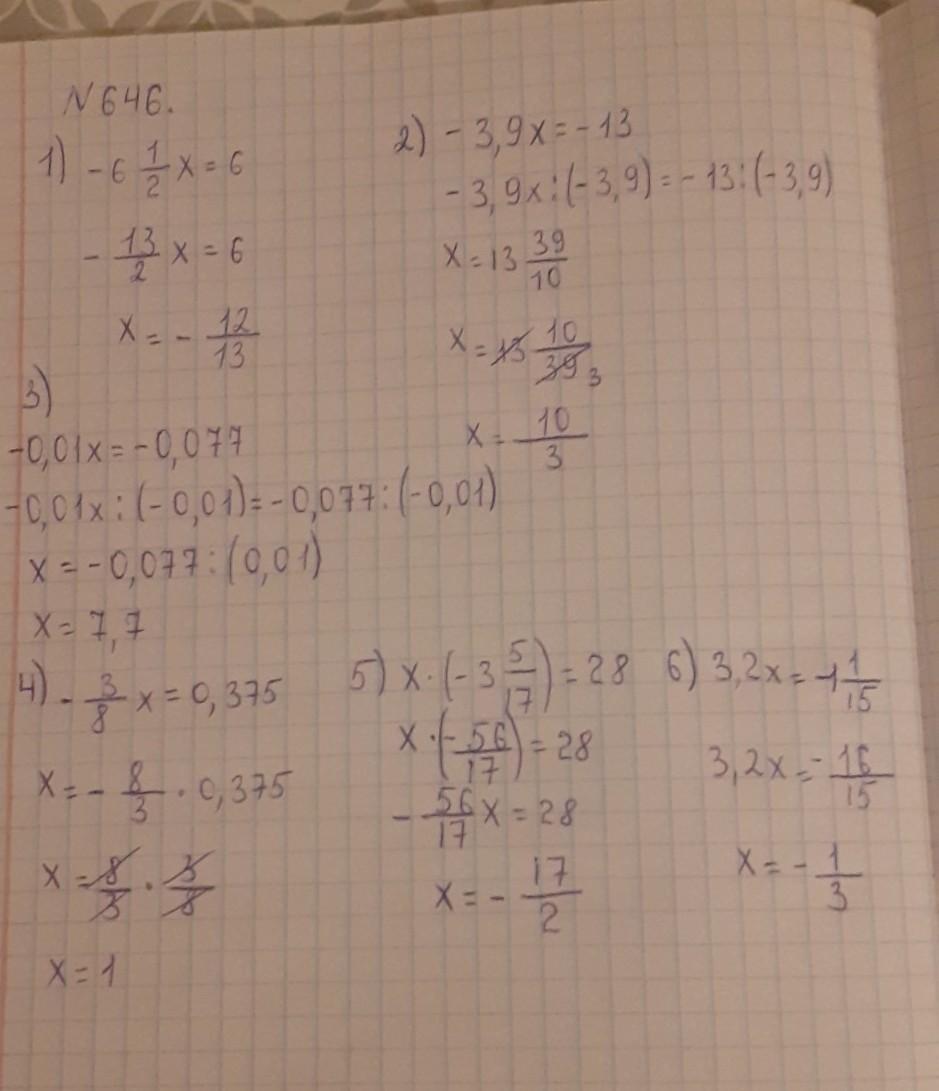 N 646.
1) -6 1/2 x = 6
- 13/2 x = 6
x = - 12/13
2) - 3,9x = - 13
- 3,9x : (- 3,9) = - 13 : (- 3,9)
x = 13 39/10
x = 13 10/39 3
x = 10/3
3)
-0,01x = - 0,077
-0,01x : (- 0,01) = - 0,077 : (- 0,01)
x = - 0,077 : (0,01)
x = 7,7
4) - 3/8 x = 0,375
x = - 8/3 · 0,375
x = 8/3 · 3/8
x = 1
5) x · (- 3 5/17) = 28
x · (- 56/17) = 28
- 56/17 x = 28
x = - 17/2
6) 3,2x = -1 1/15
3,2x = - 16/15
x = - 1/3